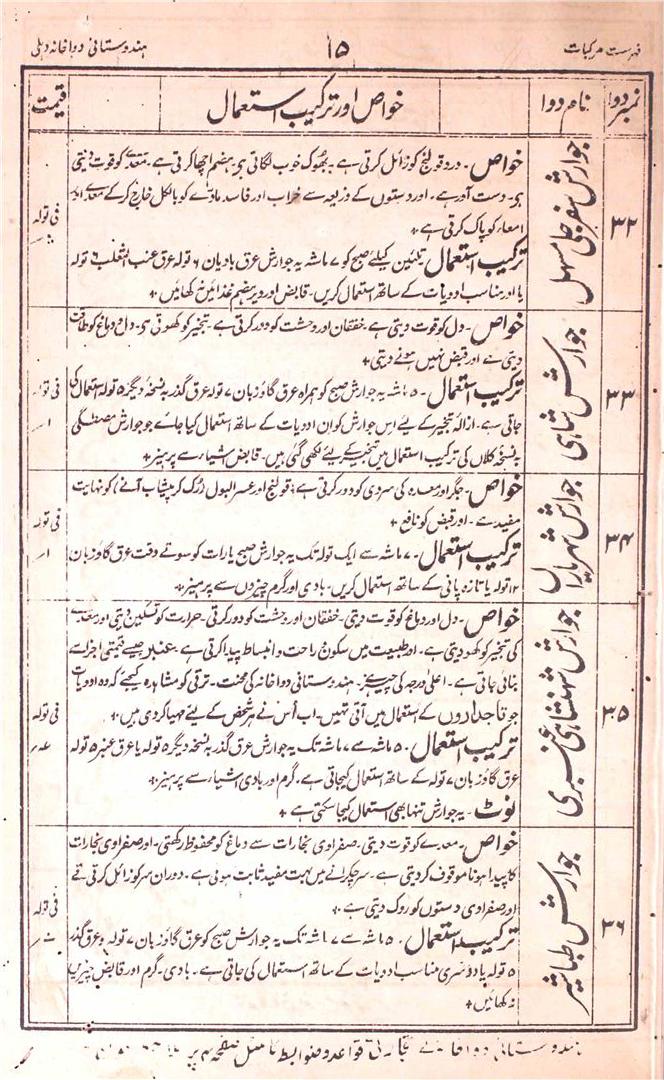 فہرست مرکبات ۱۵ ہندوستانی دواخانہ دہلی
نمبر دوا نام دوا خواص اور ترکیب استعمال قیمت
۳۲ جوارش سفرجلی مسہل
خواص۔ درد قولنج کو زائل کرتی ہے۔ بھوک خوب لگاتی ہے، ہضم اچھا کرتی ہے۔ معدے کو قوت دیتی
ہے۔ دست آور ہے۔ اور دستوں کے ذریعہ سے خراب اور فاسد مادے کو بالکل خارج کر کے معدے اور
امعاء کو پاک کرتی ہے +
ترکیب استعمال۔ تلئین کیلئے صبح کو ۷ ماشہ یہ جوارش عرق بادیان ۶ تولہ عرق عنب الثعلب ۶ تولہ
یا اور مناسب ادویات کے ساتھ استعمال کریں۔ قابض اور دیر ہضم غذائیں نہ کھائیں +
فی تولہ
۳۳ جوارش شاہی
خواص۔ دل کو قوت دیتی ہے۔ خفقان اور وحشت کو دور کرتی ہے۔ تبخیر کو کھوتی ہے۔ دل و دماغ کو طاقت
دیتی ہے اور قبض نہیں ہونے دیتی +
ترکیب استعمال۔ ۵ ماشہ یہ جوارش صبح کو ہمراہ عرق گاؤزبان ۷ تولہ عرق گذر بہ نسخہ دیگر ۵ تولہ استعمال کی
جاتی ہے۔ ازالۂ تبخیر کے لیے اس جوارش کو ان ادویات کے ساتھ استعمال کیا جائے جو جوارش مصطگی
بہ نسخہ کلاں کی ترکیب استعمال میں تبخیر کے لیے لکھی گئی ہیں۔ قابض اشیاء سے پرہیز +
فی تولہ ۱ر
۳۴ جوارش شہریاراں
خواص۔ جگر اور معدہ کی سردی کو دور کرتی ہے؛ قولنج اور عسر البول (رُک رُک کر پیشاب آنے) کو نہایت
مفید ہے۔ اور قبض کو نافع +
ترکیب استعمال۔ ۷ ماشہ سے ایک تولہ تک یہ جوارش صبح یا رات کو سوتے وقت عرق گاؤزبان
۱۲ تولہ یا تازہ پانی کے ساتھ استعمال کریں۔ بادی اور گرم چیزوں سے پرہیز +
فی تولہ ۱ر
۳۵ جوارش شہنشاہی عنبری
خواص۔ دل اور دماغ کو قوت دیتی۔ خفقان اور وحشت کو دور کرتی۔ حرارت کو تسکین دیتی اور معدے
کی تبخیر کو کھو دیتی ہے۔ اور طبیعت میں سکون، راحت و انبساط پیدا کرتی ہے۔ عنبر جیسے قیمتی اجزاء سے
بنائی جاتی ہے۔ اعلیٰ درجہ کی چیز ہے۔ ہندوستانی دواخانہ کی محنت۔ ترقی کو مشاہدہ کیجئے کہ وہ ادویات
جو تاجداروں کے استعمال میں آتی تھیں۔ اب اُس نے ہر شخص کے لیے مہیا کر دی ہیں +
ترکیب استعمال۔ ۵ ماشہ سے ۷ ماشہ تک یہ جوارش عرق گذر بہ نسخہ دیگر ۵ تولہ یا عرق عنبر ۵ تولہ
عرق گاؤزبان ۷ تولہ کے ساتھ استعمال کیجاتی ہے۔ گرم اور بادی اشیاء سے پرہیز +
نوٹ۔ یہ جوارش تنہا بھی استعمال کیجا سکتی ہے +
فی تولہ
۳۶ جوارش طباشیر
خواص۔ معدے کو قوت دیتی۔ صفراوی بخارات سے دماغ کو محفوظ رکھتی۔ اور صفراوی بخارات
کا پیدا ہونا موقوف کر دیتی ہے۔ سر چکرانے میں بہت مفید ثابت ہوئی ہے۔ دوران سر کو زائل کرتی ہے
اور صفراوی دستوں کو روک دیتی ہے +
ترکیب استعمال۔ ۵ ماشہ سے ۷ ماشہ تک یہ جوارش صبح کو عرق گاؤزبان ۷ تولہ و عرق گذر
۵ تولہ یا دوسری مناسب ادویات کے ساتھ استعمال کی جاتی ہے۔ بادی۔ گرم اور قابض چیزیں
نہ کھائیں +
فی تولہ
ہندوستانی دواخانے کے تجارتی قواعد و ضوابط مفصل صفحہ پر